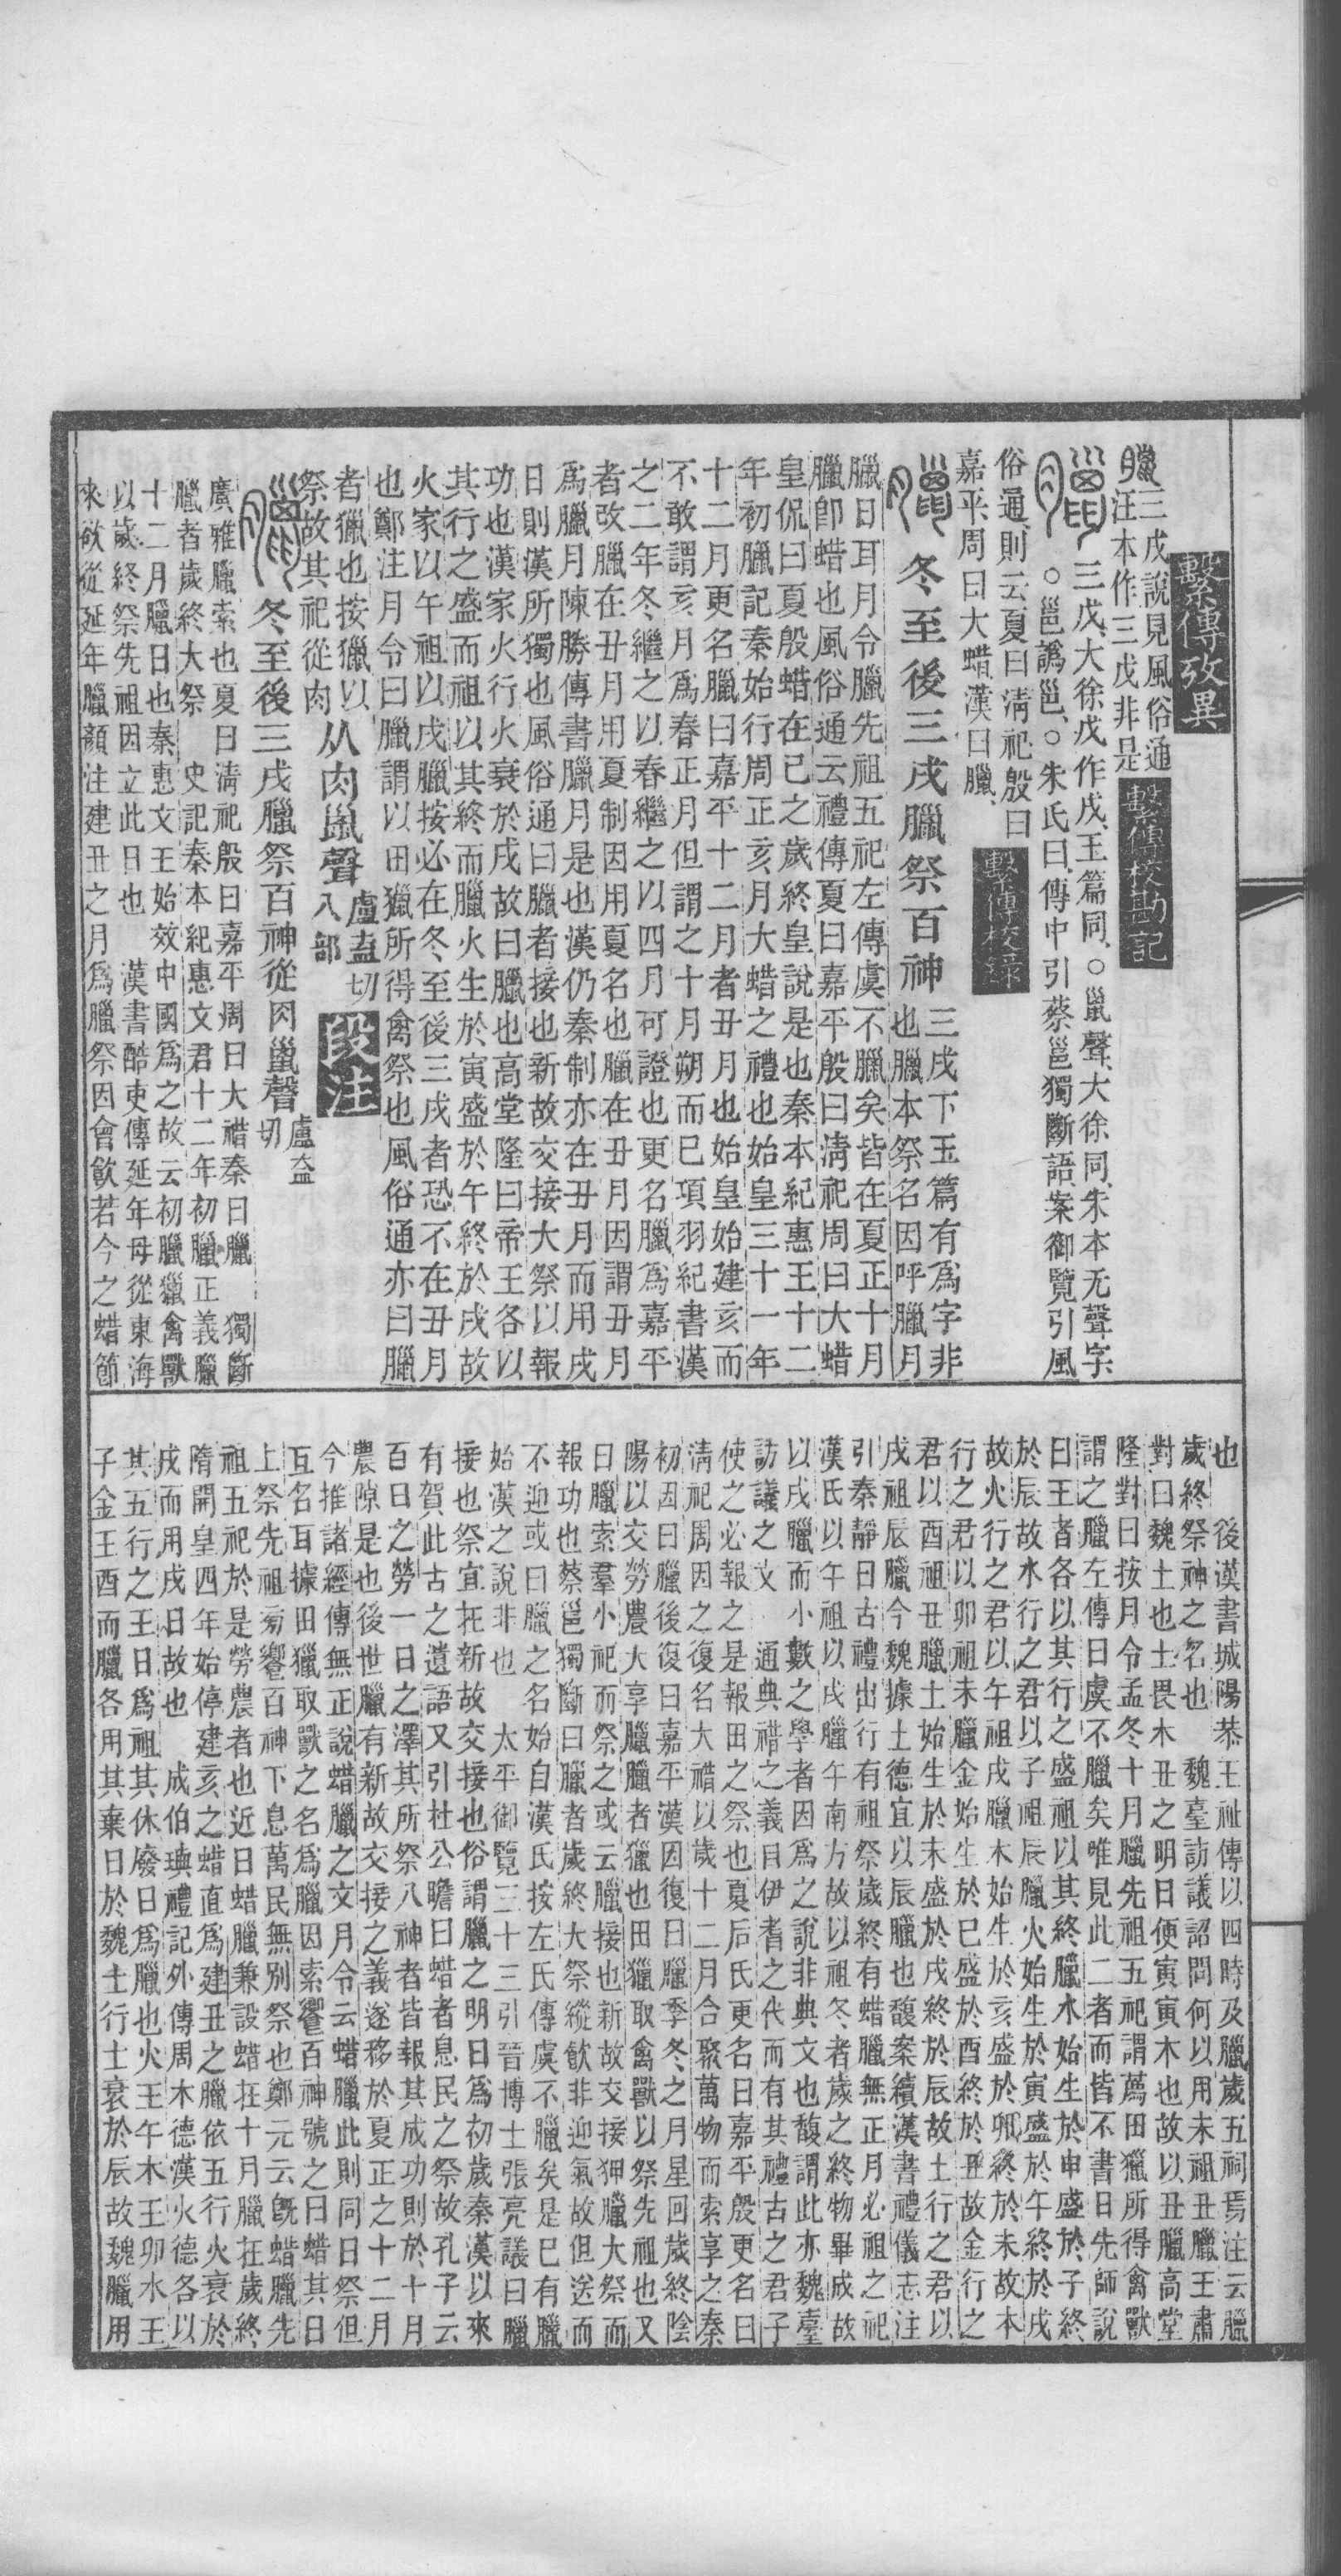 繫傳攷異
臘三戌說見風俗通
汪本作三戊非是
繫傳校勘記
三戊大徐戊作戌玉篇同○巤聲大徐同朱本无聲字
○邕譌邕○朱氏曰傳中引蔡邕獨斷語案御覽引風
俗通則云夏曰清祀殷曰
嘉平周曰大蜡漢曰臘
繫傳校錄
臘冬至後三戌臘祭百神
三戌下玉篇有爲字非
也臘本祭名因呼臘月
臘日耳月令臘先祖五祀左傳虞不臘矣皆在夏正十月
臘卽蜡也風俗通云禮傳夏曰嘉平殷曰清祀周曰大蜡
皇侃曰夏殷蜡在己之歲終皇說是也秦本紀惠王十二
年初臘記秦始行周正亥月大蜡之禮也始皇三十一年
十二月更名臘曰嘉平十二月者丑月也始皇始建亥而
不敢謂亥月爲春正月但謂之十月朔而已項羽紀書漢
之二年冬繼之以春繼之以四月可證也更名臘爲嘉平
者改臘在丑月用夏制因用夏名也臘在丑月因謂丑月
爲臘月陳勝傳書臘月是也漢仍秦制亦在丑月而用戌
日則漢所獨也風俗通曰臘者接也新故交接大祭以報
功也漢家火行火衰於戌故曰臘也高堂隆曰帝王各以
其行之盛而祖以其終而臘火生於寅盛於午終於戌故
火家以午祖以戌臘按必在冬至後三戌者恐不在丑月
也鄭注月令曰臘謂以田獵所得禽祭也風俗通亦曰臘
者獵也按獵以
祭故其祀從肉
从肉巤聲
盧盍切
八部
段注
臘冬至後三戌臘祭百神從肉巤聲
盧盍
切
廣雅臘索也夏曰清祀殷曰嘉平周曰大䄍秦曰臘 獨斷
臘者歲終大祭 史記秦本紀惠文君十二年初臘正義臘
十二月臘日也秦惠文王始效中國爲之故云初臘獵禽獸
以歲終祭先祖因立此日也 漢書酷吏傳延年母從東海
來欲從延年臘顏注建丑之月爲臘祭因會飮若今之蜡節
也 後漢書城陽恭王祉傳以四時及臘歲五祠焉注云臘
歲終祭神之名也 魏臺訪議詔問何以用未祖丑臘王肅
對曰魏土也土畏木丑之明日便寅寅木也故以丑臘高堂
隆對曰按月令孟冬十月臘先祖五祀謂薦田獵所得禽獸
謂之臘左傳曰虞不臘矣唯見此二者而皆不書日先師說
曰王者各以其行之盛祖以其終臘水始生於申盛於子終
於辰故水行之君以子祖辰臘火始生於寅盛於午終於戌
故火行之君以午祖戌臘木始生於亥盛於卯終於未故木
行之君以卯祖未臘金始生於巳盛於酉終於丑故金行之
君以酉祖丑臘土始生於未盛於戌終於辰故土行之君以
戌祖辰臘今魏據土德宜以辰臘也馥案續漢書禮儀志注
引秦靜曰古禮出行有祖祭歲終有蜡臘無正月必祖之祀
漢氏以午祖以戌臘午南方故以祖冬者歲之終物畢成故
以戌臘而小數之學者因爲之說非典文也馥謂此亦魏臺
訪議之文 通典䄍之義目伊耆之代而有其禮古之君子
使之必報之是報田之祭也夏后氏更名曰嘉平殷更名曰
清祀周因之復名大䄍以歲十二月合聚萬物而索享之秦
初因曰臘後復曰嘉平漢因復曰臘季冬之月星回歲終陰
陽以交勞農大享臘臘者獵也田獵取禽獸以祭先祖也又
曰臘索羣小祀而祭之或云臘接也新故交接狎臘大祭而
報功也蔡邕獨斷曰臘者歲終大祭縱飮非迎氣故但送而
不迎或曰臘之名始自漢氏按左氏傳虞不臘矣是已有臘
始漢之說非也 太平御覽三十三引晉博士張亮議曰臘
接也祭宜在新故交接也俗謂臘之明日爲初歲秦漢以來
有賀此古之遺語又引杜公瞻曰蜡者息民之祭故孔子云
百日之勞一日之澤其所祭八神者皆報其成功則於十月
農隙是也後世臘有新故交接之義遂移於夏正之十二月
今推諸經傳無正說蜡臘之文月令云蜡臘此則同日祭但
互名耳據田獵取獸之名爲臘因索饗百神號之曰蜡其日
上祭先祖㫄饗百神下息萬民無別祭也鄭元云旣蜡臘先
祖五祀於是勞農者也近日蜡臘兼設蜡在十月臘在歲終
隋開皇四年始停建亥之蜡直爲建丑之臘依五行火衰於
戌而用戌日故也 成伯璵禮記外傳周木德漢火德各以
其五行之王日爲祖其休廢日爲臘也火王午木王卯水王
子金王酉而臘各用其棄日於魏土行土衰於辰故魏臘用